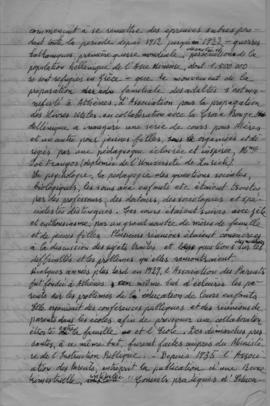 commençait à se remettre des épreuves subies pen-
dant toute la période depuis 1912 jusqu'en 1922 — guerres
balkaniques, première guerre mondiale,
population hellénique de l'Asie Mineure, dont 1.500.000
se sont réfugiés en Grèce — que le mouvement de la
préparation familiale des adultes s'est ma-
nifesté à Athènes. L'Association pour la propagation
des livres utiles, en collaboration avec la Croix Rouge
Hellénique a inauguré une série de cours pour Mères
et un autre pour jeunes filles,
gés par une pédagogue éclairée et inspirée, Mme
(diplômée de l'Université de Zurich)
La psychologie, la pédagogie des questions sociales,
biologiques, les soins aux enfants etc. étaient traités
par des professeurs, des docteurs, des sociologues et spé-
cialistes distingués. Ces cours étaient suivis avec zèle
et enthousiasme, par un grand nombre de mères de famille
et de jeunes filles. Plusieurs réunions étaient consacrées
à la discussion des sujets traités et les questions sur les
difficultés et les problèmes qu'elles rencontraient.
Quelques années plus tard en 1929, l'Association des Parents
fut fondée à Athènes même but d'éclairer les pa-
rents sur les problèmes de l'éducation de leurs enfants.
Elle organisa des conférences publiques et des réunions de
parents dans les écoles afin de provoquer une collaboration
étroite la famille et l'Ecole. Des démarches pres-
santes, à ce même but, furent faites auprès du Ministè-
re de l'Instruction Publique. — Depuis 1935 l'Associa-
tion des Parents, entreprit la publication d'une Revue
Conseils pratiques